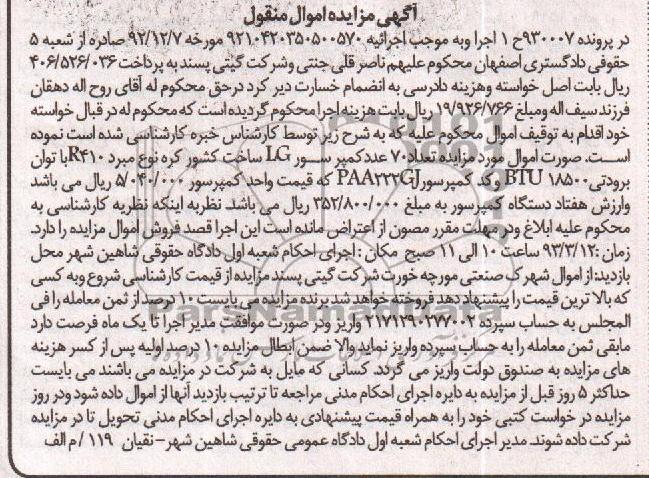 آگهی مزایده اموال منقول
در پرونده ۹۳۰۰۰۷ح ۱ اجرا وبه موجب اجرائیه ۹۲۱۰۴۲۰۳۵۰۵۰۰۵۷۰ مورخه ۹۲/۱۲/۷ صادره از شعبه ۵
حقوقی دادگستری اصفهان محکوم علیهم ناصر قلی جنتی وشرکت گیتی پسند به پرداخت ۴۰۶/۵۲۶/۰۳۶
ریال بابت اصل خواسته وهزینه دادرسی به انضمام خسارت دیر کرد درحق محکوم له آقای روح اله دهقان
فرزند سیف اله ومبلغ ۱۹/۹۲۶/۷۶۶ ریال بابت هزینه اجرا محکوم گردیده است که محکوم له در قبال خواسته
خود اقدام به توقیف اموال محکوم علیه که به شرح زیر توسط کارشناس خبره کارشناسی شده است نموده
است. صورت اموال مورد مزایده تعداد۷۰ عدد کمپر سور LG ساخت کشور کره نوع مبرد R۴۱۰با توان
برودتی۱۸۵۰۰ BTU وکد کمپرسور PAA۲۲۲GJ که قیمت واحد کمپرسور ۵/۰۴۰/۰۰۰ ریال می باشد
وارزش هفتاد دستگاه کمپرسور به مبلغ ۳۵۲/۸۰۰/۰۰۰ ریال می باشد. نظر به اینکه نظریه کارشناسی به
محکوم علیه ابلاغ ودر مهلت مقرر مصون از اعتراض مانده است این اجرا قصد فروش اموال مزایده را دارد.
زمان :۹۳/۳/۱۲ ساعت ۱۰ الی ۱۱ صبح مکان : اجرای احکام شعبه اول دادگاه حقوقی شاهین شهر محل
بازدید: از اموال شهرک صنعتی مورچه خورت شرکت گیتی پسند مزایده از قیمت کارشناسی شروع وبه کسی
که بالا ترین قیمت را پیشنهاد دهد فروخته خواهد شد برنده مزایده می بایست ۱۰ درصد از ثمن معامله را فی
المجلس به حساب سپرده ۲۱۷۱۲۹۰۲۷۷۰۰۲ واریز ودر صورت موافقت مدیر اجرا تا یک ماه فرصت دارد
مابقی ثمن معامله را به حساب سپرده واریز نماید والا ضمن ابطال مزایده ۱۰ درصد اولیه پس از کسر هزینه
های مزایده به صندوق دولت واریز می گردد. کسانی که مایل به شرکت در مزایده می باشند می بایست
حداکثر ۵ روز قبل از مزایده به دایره اجرای احکام مدنی مراجعه تا ترتیب بازدید آنها از اموال داده شود ودر روز
مزایده در خواست کتبی خود را به همراه قیمت پیشنهادی به دایره اجرای احکام مدنی تحویل تا در مزایده
شرکت داده شوند. مدیر اجرای احکام شعبه اول دادگاه عمومی حقوقی شاهین شهر – نقیان ۱۱۹ / م الف